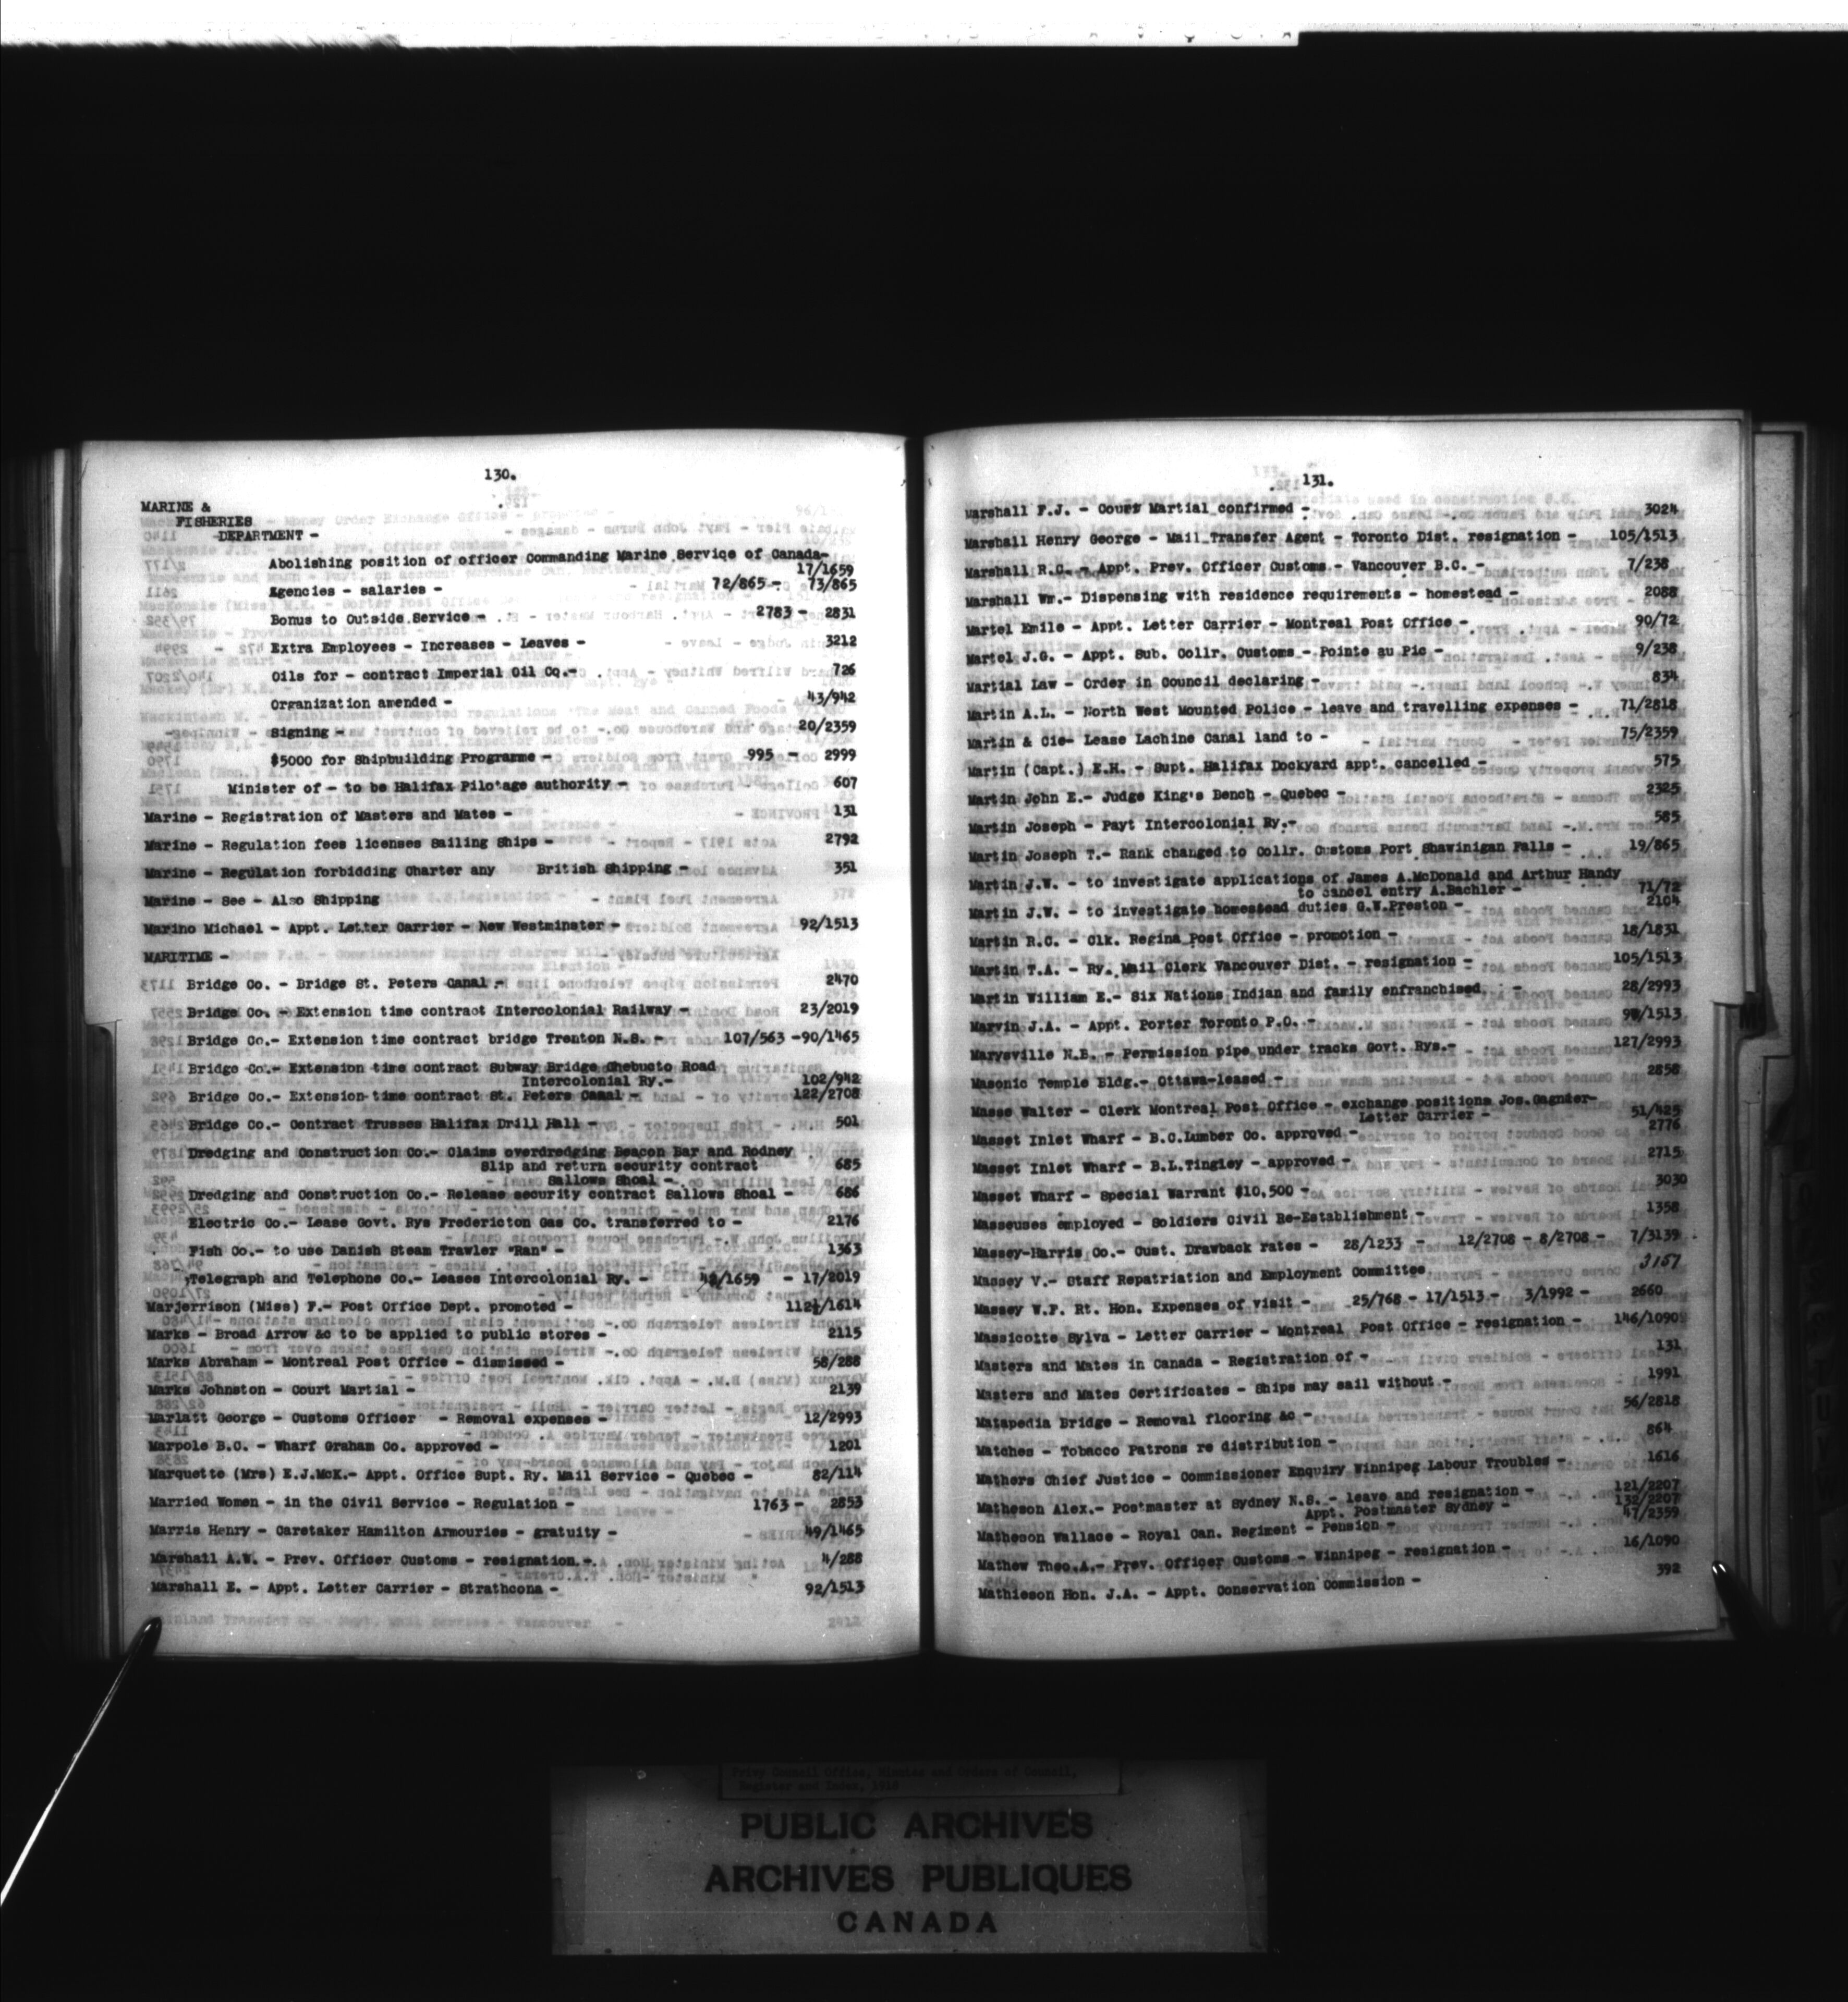 130.
MARINE &
FISHERIES
DEPARTMENT -
Abolishing position of officer Commanding Marine Service of Canada-
17/1659
Agencies - salaries - 72/865 - 73/865
Bonus to Outside Service - 2783 - 2831
Extra Employees - Increases - Leaves - 3212
Oils for - contract Imperial Oil Co.- 726
Organization amended - 43/942
Signing - 20/2359
$5000 for Shipbuilding Programme - 995 - 2999
Minister of - to be Halifax Pilotage authority - 607
Marine - Registration of Masters and Mates - 131
Marine - Regulation fees licenses Sailing Ships - 2792
Marine - Regulation forbidding Charter any British Shipping - 351
Marine - See - Also Shipping
Marino Michael - Appt. Letter Carrier - New Westminster - 92/1513
MARITIME -
Bridge Co. - Bridge St. Peters Canal - 2470
Bridge Co. - Extension time contract Intercolonial Railway - 23/2019
Bridge Co.- Extension time contract bridge Trenton N.S. - 107/563 -90/1465
Bridge Co.- Extension time contract Subway Bridge Chebucto Road
Intercolonial Ry.- 102/942
Bridge Co.- Extension time contract St. Peters Canal - 122/2708
Bridge Co.- Contract Trusses Halifax Drill Hall - 501
Dredging and Construction Co.- Claims overdredging Beacon Bar and Rodney
Slip and return security contract 685
Sallows Shoal -
Dredging and Construction Co.- Release security contract Sallows Shoal - 686
Electric Co.- Lease Govt. Rys Fredericton Gas Co. transferred to - 2176
Fish Co.- to use Danish Steam Trawler "Ran" - 1363
Telegraph and Telephone Co.- Leases Intercolonial Ry. - /1659 - 17/2019
Marjerrison (Miss) F.- Post Office Dept. promoted - 112½/1614
Marks - Broad Arrow &c to be applied to public stores - 2115
Marks Abraham - Montreal Post Office - dismissed - 58/288
Marks Johnston - Court Martial - 2139
Marlatt George - Customs Officer - Removal expenses - 12/2993
Marpole B.C. - Wharf Graham Co. approved - 1201
Marquette (Mrs) E.J.McK.- Appt. Office Supt. Ry. Mail Service - Quebec - 82/114
Married Women - in the Civil Service - Regulation - 1763 - 2853
Marris Henry - Caretaker Hamilton Armouries - gratuity - 49/1465
Marshall A.W. - Prev. Officer Customs - resignation - 4/288
Marshall E. - Appt. Letter Carrier - Strathcona - 92/1513
131.
Marshall F.J. - Court Martial confirmed - 3024
Marshall Henry George - Mail Transfer Agent - Toronto Dist. resignation - 105/1513
Marshall R.C. - Appt. Prev. Officer Customs - Vancouver B.C. - 7/238
Marshall Wm.- Dispensing with residence requirements - homestead - 2088
Martel Emile - Appt. Letter Carrier - Montreal Post Office - 90/72
Martel J.G. - Appt. Sub. Collr. Customs - Pointe au Pic - 9/238
Martial Law - Order in Council declaring - 834
Martin A.L. - North West Mounted Police - leave and travelling expenses - 71/2818
Martin & Cie- Lease Lachine Canal land to - 75/2359
Martin (Capt.) E.H. - Supt. Halifax Dockyard appt. cancelled - 575
Martin John E.- Judge King's Bench - Quebec - 2325
Martin Joseph - Payt Intercolonial Ry.- 585
Martin Joseph T.- Rank changed to Collr. Customs Port Shawinigan Falls - 19/865
Martin J.W. - to investigate applications of James A.McDonald and Arthur Handy
to cancel entry A.Bachler - 71/72
Martin J.W. - to investigate homestead duties G.W.Preston - 2104
Martin R.C. - Clk. Regina Post Office - promotion - 18/1831
Martin T.A. - Ry. Mail Clerk Vancouver Dist. - resignation - 105/1513
Martin William E.- Six Nations Indian and family enfranchised - 28/2993
Marvin J.A. - Appt. Porter Toronto P.O. - /1513
Marysville N.B. - Permission pipe under tracks Govt. Rys.- 127/2993
Masonic Temple Bldg.- Ottawa-leased - 2858
Masse Walter - Clerk Montreal Post Office - exchange positions Jos.Gagnier-
Letter Carrier - 51/425
Masset Inlet Wharf - B.C.Lumber Co. approved - 2776
Masset Inlet Wharf - B.L.Tingley - approved - 2715
Masset Wharf - Special Warrant $10,500 - 3030
Masseuses employed - Soldiers Civil Re-Establishment - 1358
Massey-Harris Co.- Cust. Drawback rates - 28/1233 - 12/2708 - 8/2708 - 7/3139
Massey V.- Staff Repatriation and Employment Committee 3157
Massey W.F. Rt. Hon. Expenses of visit - 25/768 - 17/1513 - 3/1992 - 2660
Massicotte Sylva - Letter Carrier - Montreal Post Office - resignation - 146/1090
Masters and Mates in Canada - Registration of - 131
Masters and Mates Certificates - Ships may sail without - 1991
Matapedia Bridge - Removal flooring &c - 56/2818
Matches - Tobacco Patrons re distribution - 864
Mathers Chief Justice - Commissioner Enquiry Winnipeg Labour Troubles - 1616
Matheson Alex.- Postmaster at Sydney N.S. - leave and resignation - 121/2207
Appt. Postmaster Sydney - 132/2207
Matheson Wallace - Royal Can. Regiment - Pension - 47/2359
Mathew Theo.A.- Prev. Officer Customs - Winnipeg - resignation - 16/1090
Mathieson Hon. J.A. - Appt. Conservation Commission - 392
Privy Council Office, Minutes and Orders of Council,
Register and Index, 1918
PUBLIC ARCHIVES
ARCHIVES PUBLIQUES
CANADA